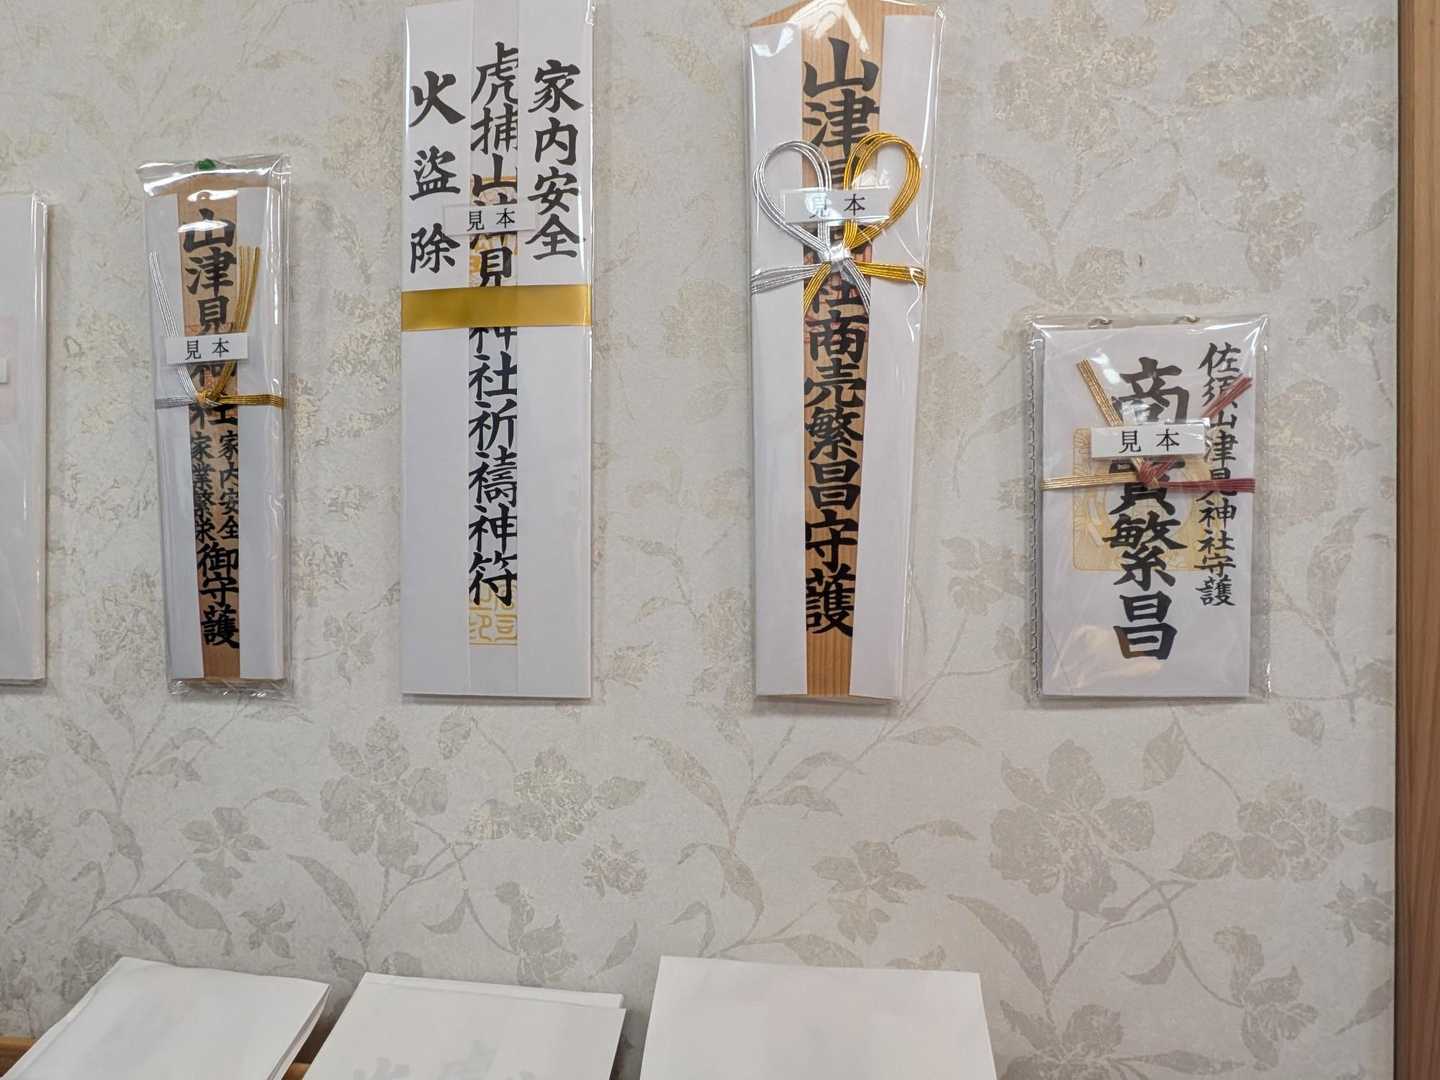 山津見神社
家内安全
家業繁栄
御守護
見本
家内安全
虎捕山津見神社祈祷神符
火盗除
見本
山津見神社商売繁昌守護
見本
佐須山津見神社守護
商賣繁昌
見本